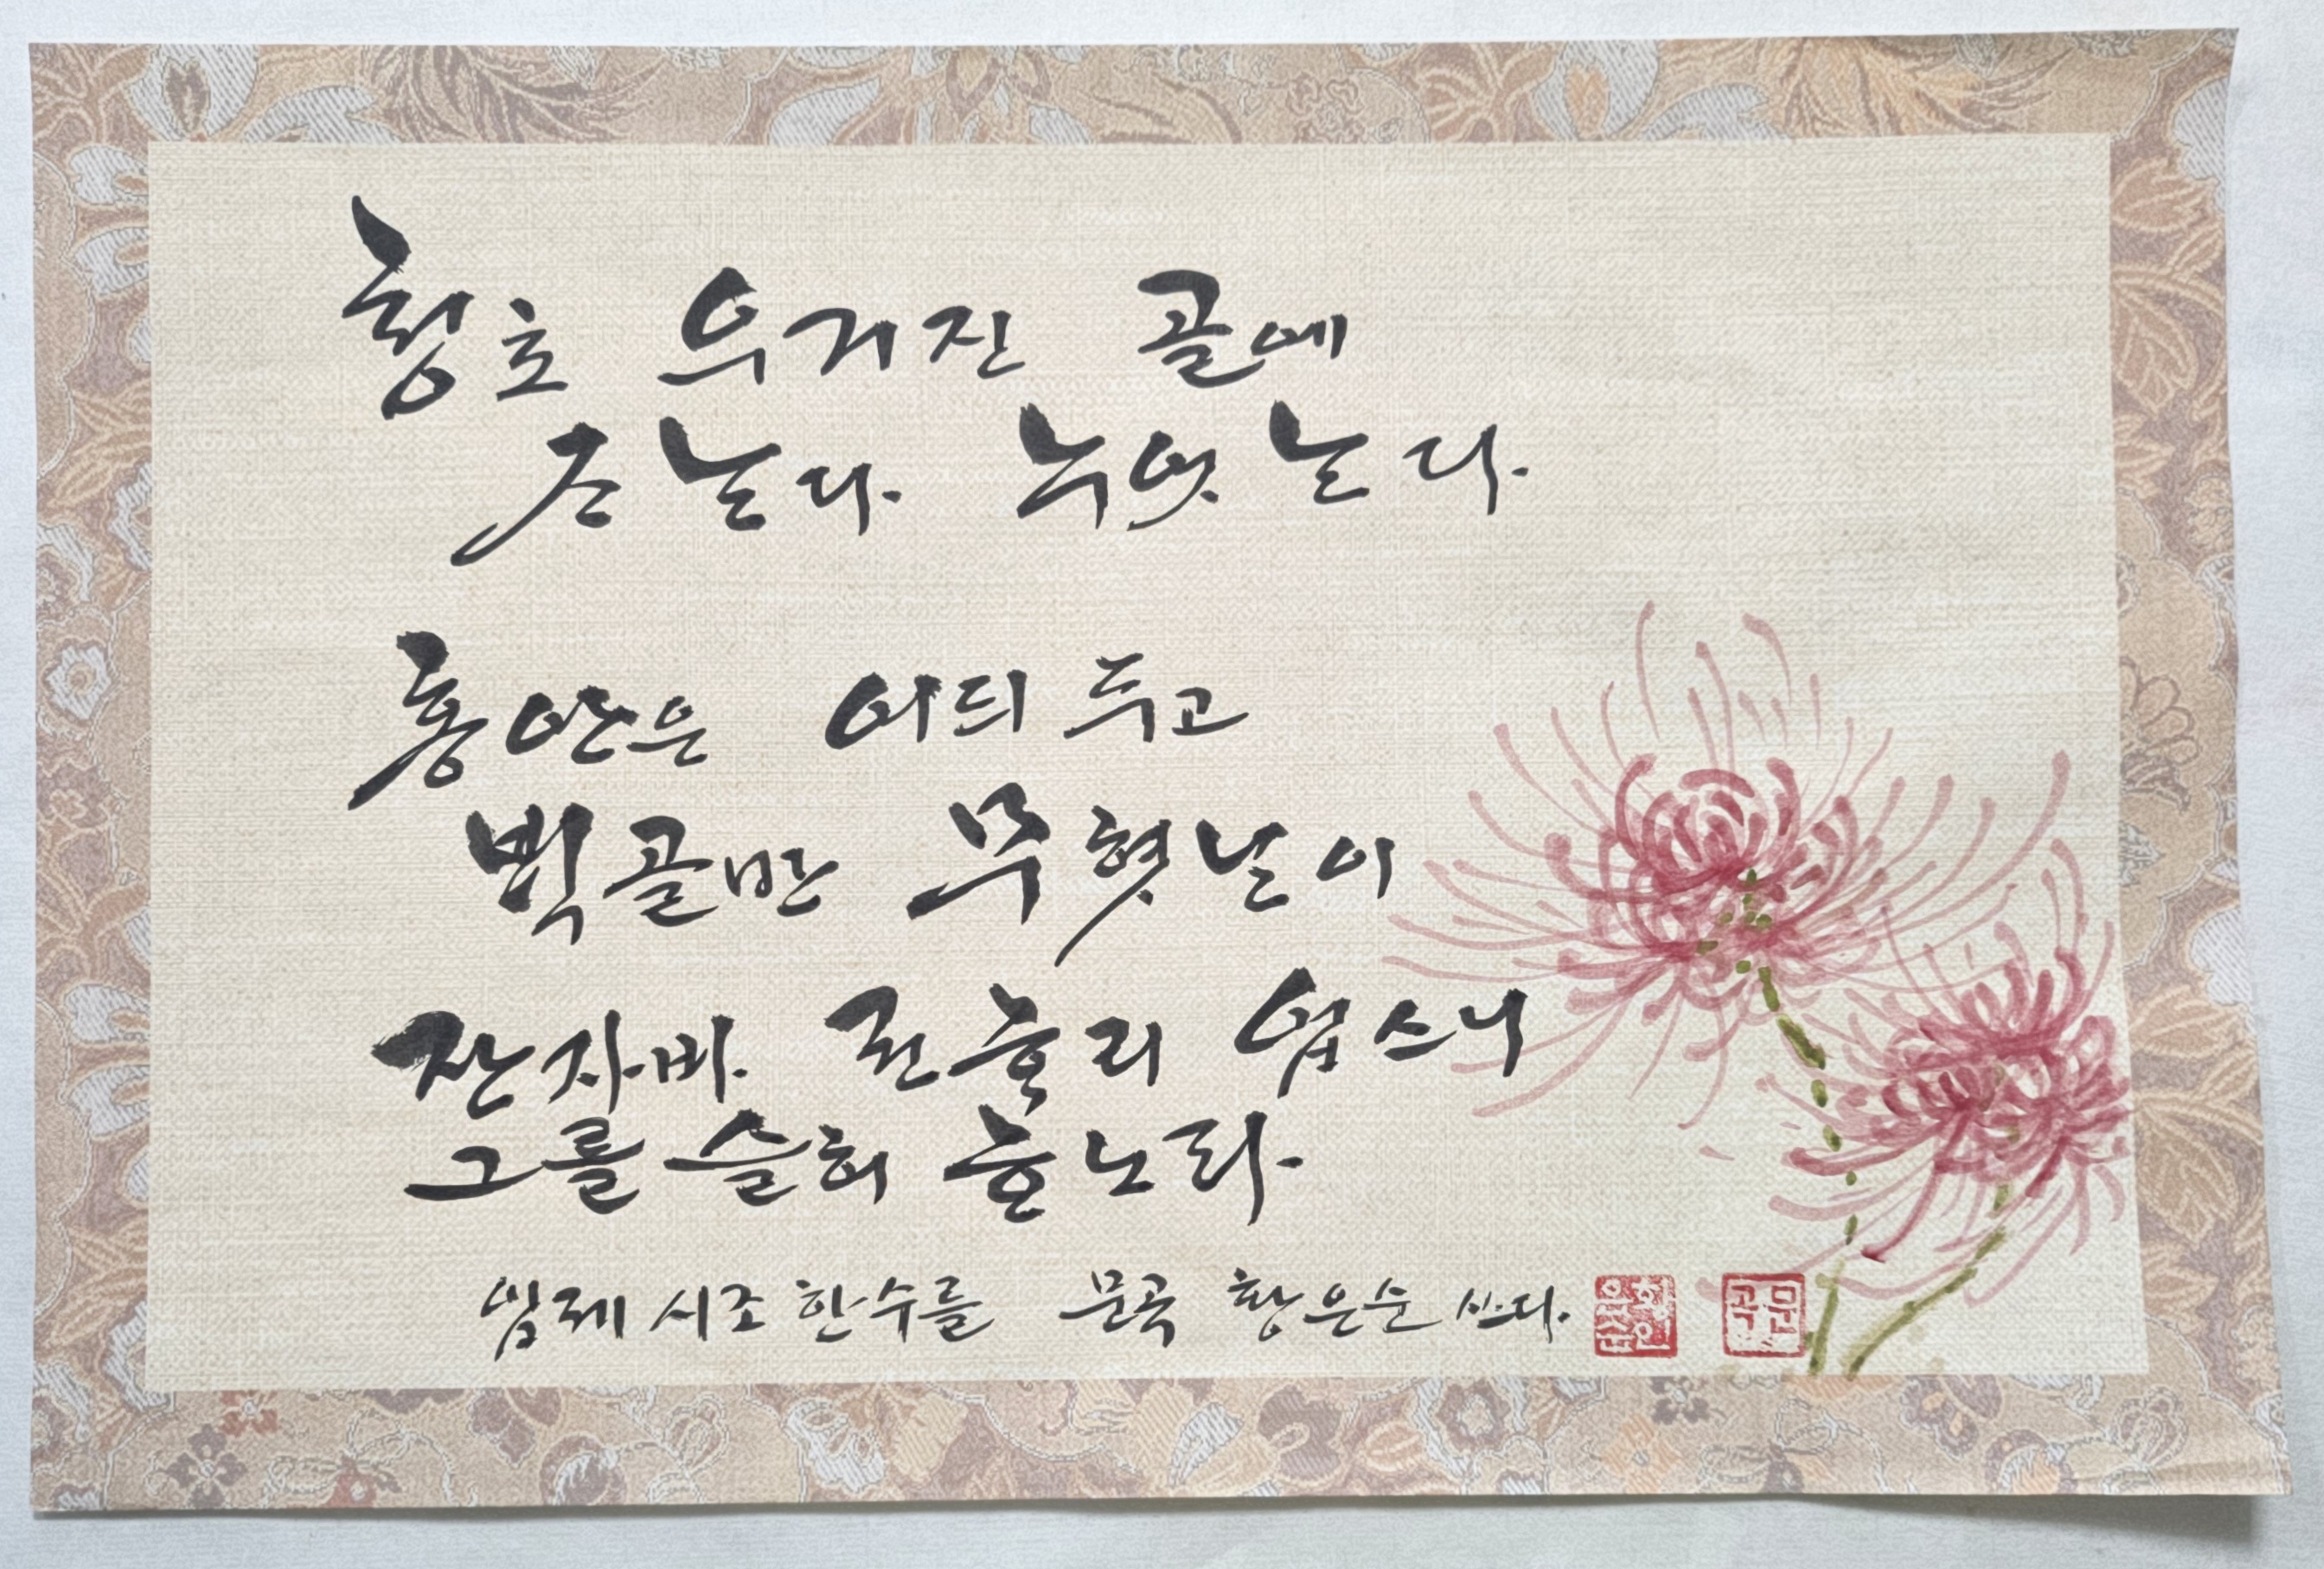 청초 우거진 골에
즈는다. 누엇는다.
홍안은 어듸 두고
백골만 무쳣는이
잔 자바 권흐리 업스니
그를 슬허 흐노라.
임제 시조 한수를 문곡 황은순 쓰다.
황은순인
문곡